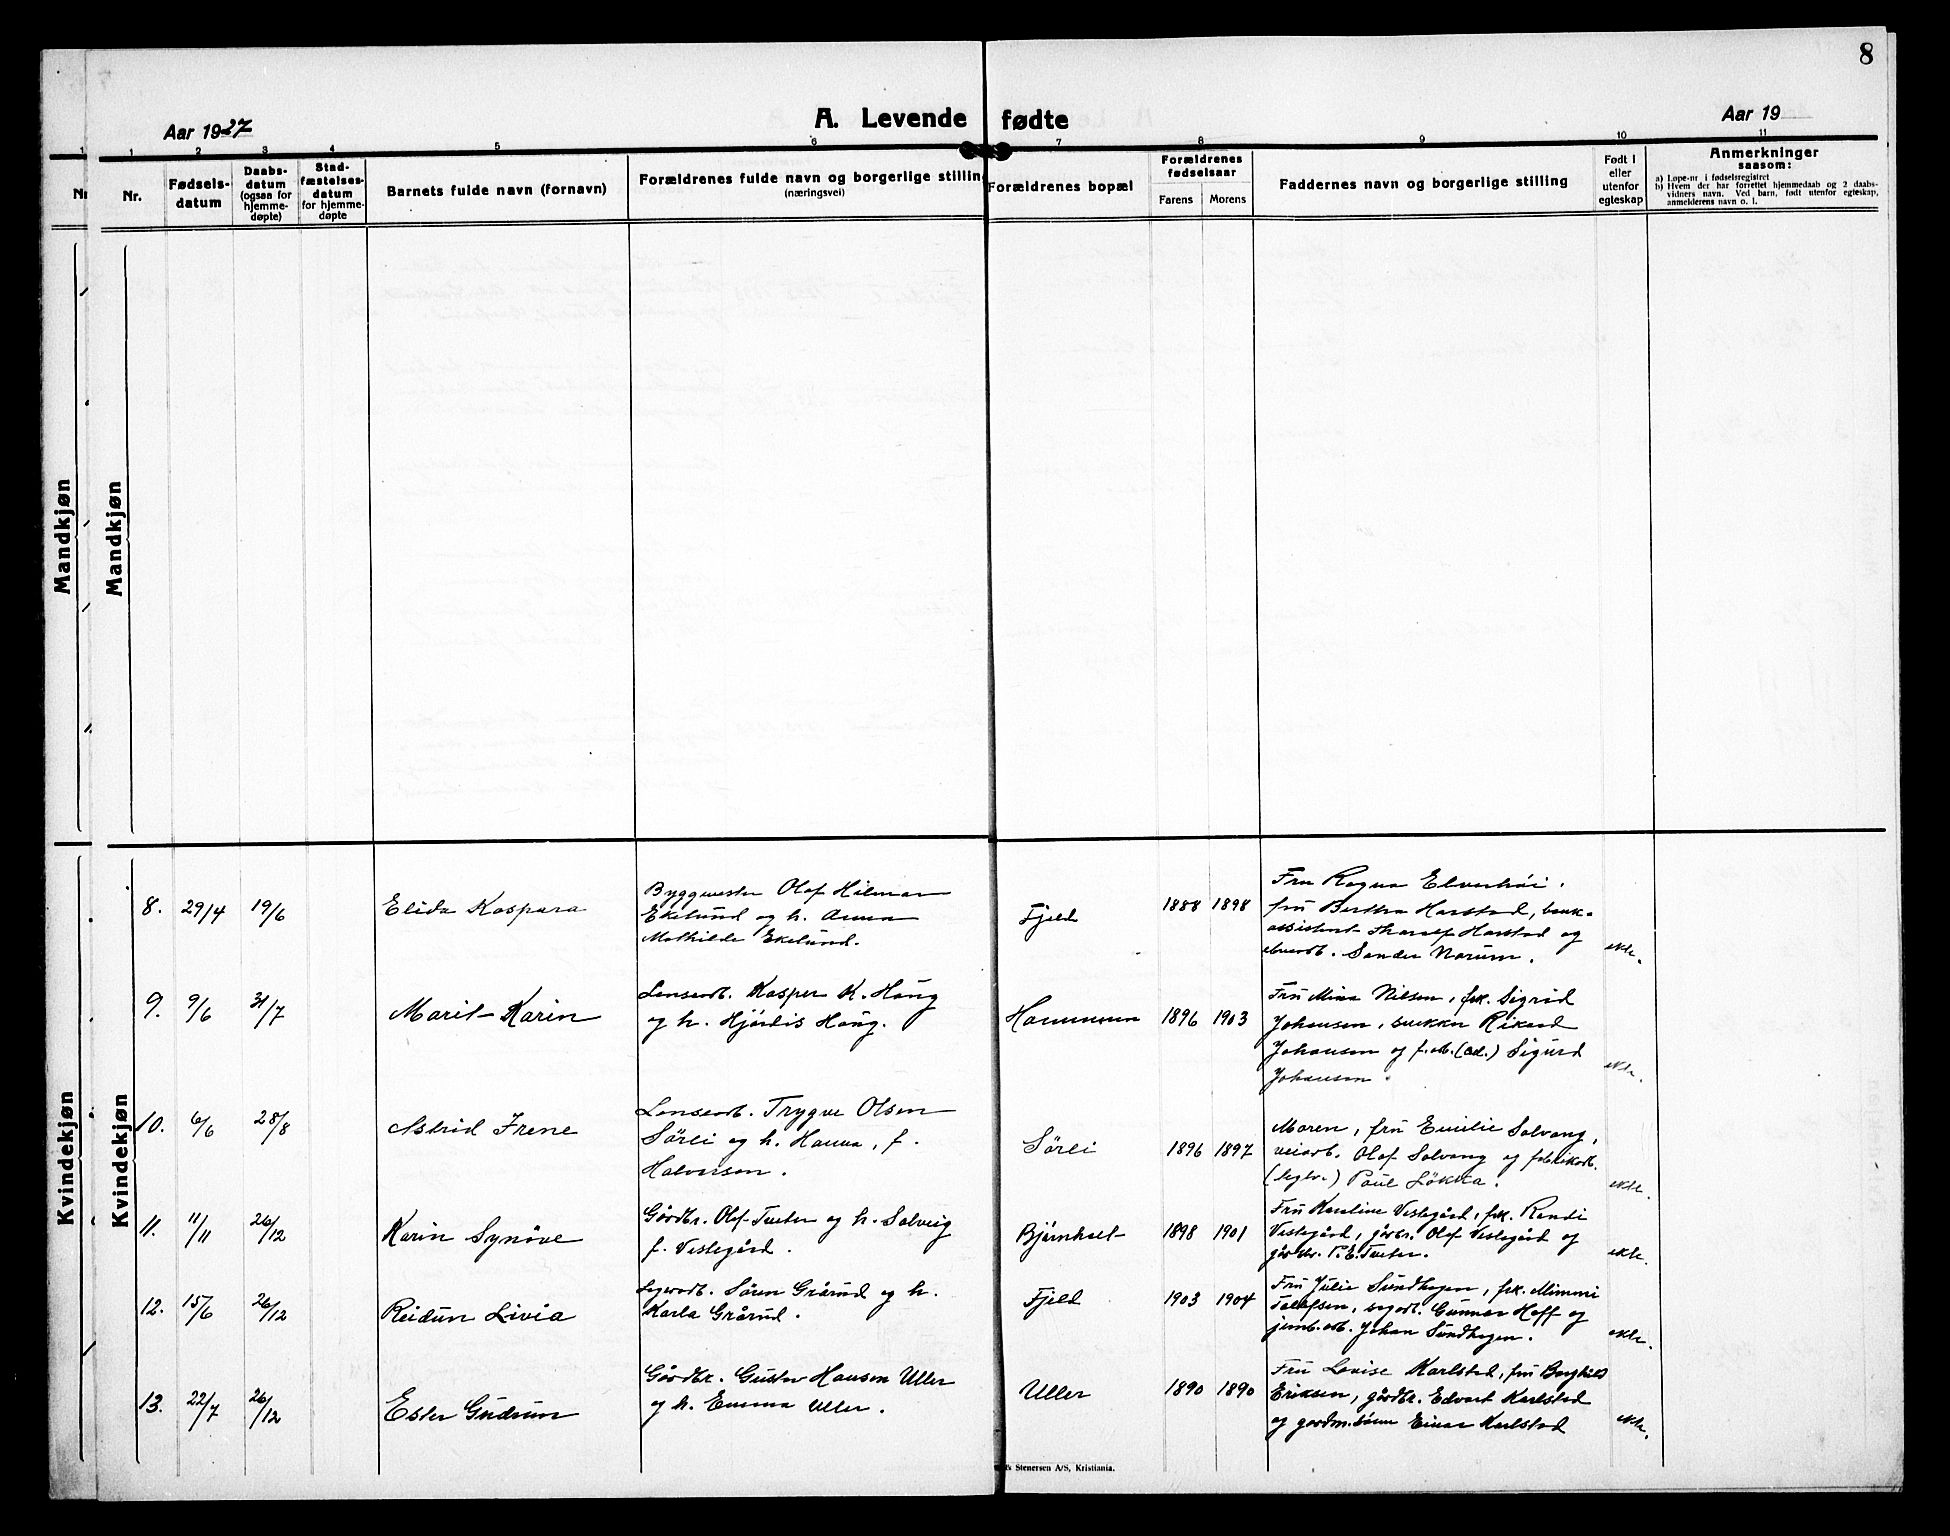 8
Aar 1927
A. Levende fødte
Aar 19
1 1 2 3 4 5 6 7 8 9 10 11
Nr. Fødsels-datum Daabs-datum (ogsaa for hjemme-døpte) Stad-fæstelses-datum for hjemme-døpte Barnets fulde navn (fornavn) Forældrenes fulde navn og borgerlige stilling (næringsvei) Forældrenes bopæl Forældrenes fødselsaar Farens Morens Faddernes navn og borgerlige stilling Født i eller utenfor egteskap Anmerkninger saasom:
a) Løpe-nr i fødselsregistret
b) Hvem der har forrettet hjemmedaab og 2 daabs-
vidners navn. Ved barn, født utenfor egteskap,
anmelderens navn o. l.
Mandkjøn
Mandkjøn
Kvindekjøn
Kvindekjøn
8. 29/4 19/6 Elida Kaspara
Byggmester Olaf Hilmar
Ekelund og h. Anna
Mathilde Ekelund.
Fjeld 1888 1898
Fru Ragna Elverhøi.
frú Bertha Harstad, bank-
assistent Thoralf Harstad og
Sander Narum.
ekte.
9. 9/6 31/7 Marit Karin
Lensearb. Kasper K. Haug
og h. Hjördis Haug.
Hammeren 1896 1903
Frú Mina Nilsen, frk. Sigrid
Johansen, snekker Rikard
Johansen og f.arb. (Ad.) Sigurd
Johansen.
ekte.
10. 6/6 28/8 Astrid Irene
Lensearb. Trygve Olsen
Sörli og h. Hanna, f.
Halvorsen.
Sörli 1896 1897
Moren, frú Emilie Solvang,
veiarb. Olaf Solvang og fabrikarb.
Paul Lökka.
ekte.
11. 11/11 26/12 Karin Synöve
Gårdbr. Olaf Tveter og h. Solveig
f. Vestegård.
Bjørnholt 1898 1901
Frú Karoline Vestegård, frk. Randi
Vestegård, gårbr. Olaf Vestegård og
gårdbr. P.E. Tveter.
ekte.
12. 15/6 26/12 Reidun Livia
Søren Grårud og h.
Karla Grårud.
Fjeld 1903 1904
Frú Julie Sundhagen, frk. Mimmi
Tollefsen, Gunnar Hoff og
jernb.arb. Johan Sundhagen.
ekte.
13. 22/7 26/12 Ester Gudrun
Gårdbr. Gustav Hansen Uller
og h. Emma Uller.
Uller 1890 1890
Frú Lovise Karlstad, frú Borghild
Eriksen, gårdbr. Edvart Karlstad
og gårdm.sönn Einar Karlstad
ekte.
Stenersen A/S, Kristiania.